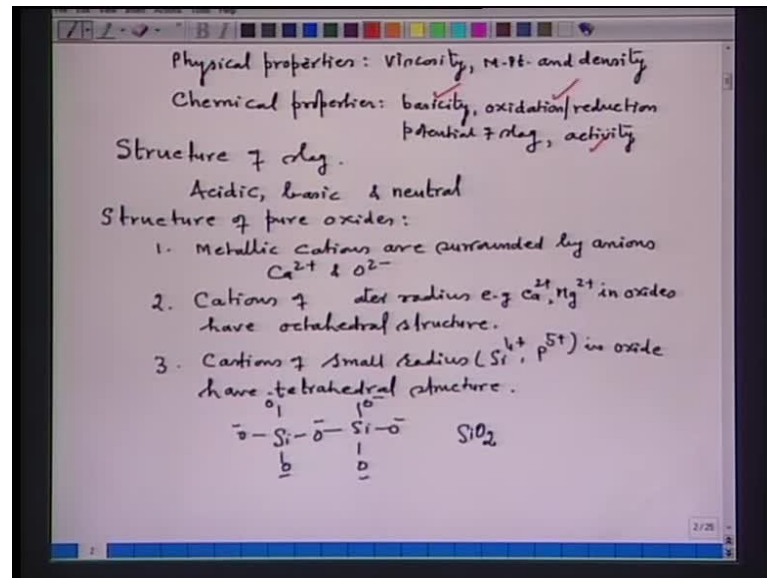 Physical properties: Viscosity, M.Pt. and density
Chemical properties: basicity, oxidation/reduction
potential of slag, activity
Structure of slag.
Acidic, basic & neutral
Structure of pure oxides:
1. Metallic cations are surrounded by anions
Ca²⁺ & O²⁻
2. Cations of ater radius e.g Ca²⁺, Mg²⁺ in oxides
have octahedral structure.
3. Castions of small radius (Si⁴⁺, P⁵⁺) in oxide
have tetrahedral structure.
O⁻ O⁻
⁻O-Si-O-Si-O⁻ SiO₂
O O
2/25
2